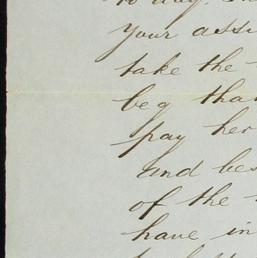 to day.
your assi
take the
beg than
pay her
and bes
of the
have in